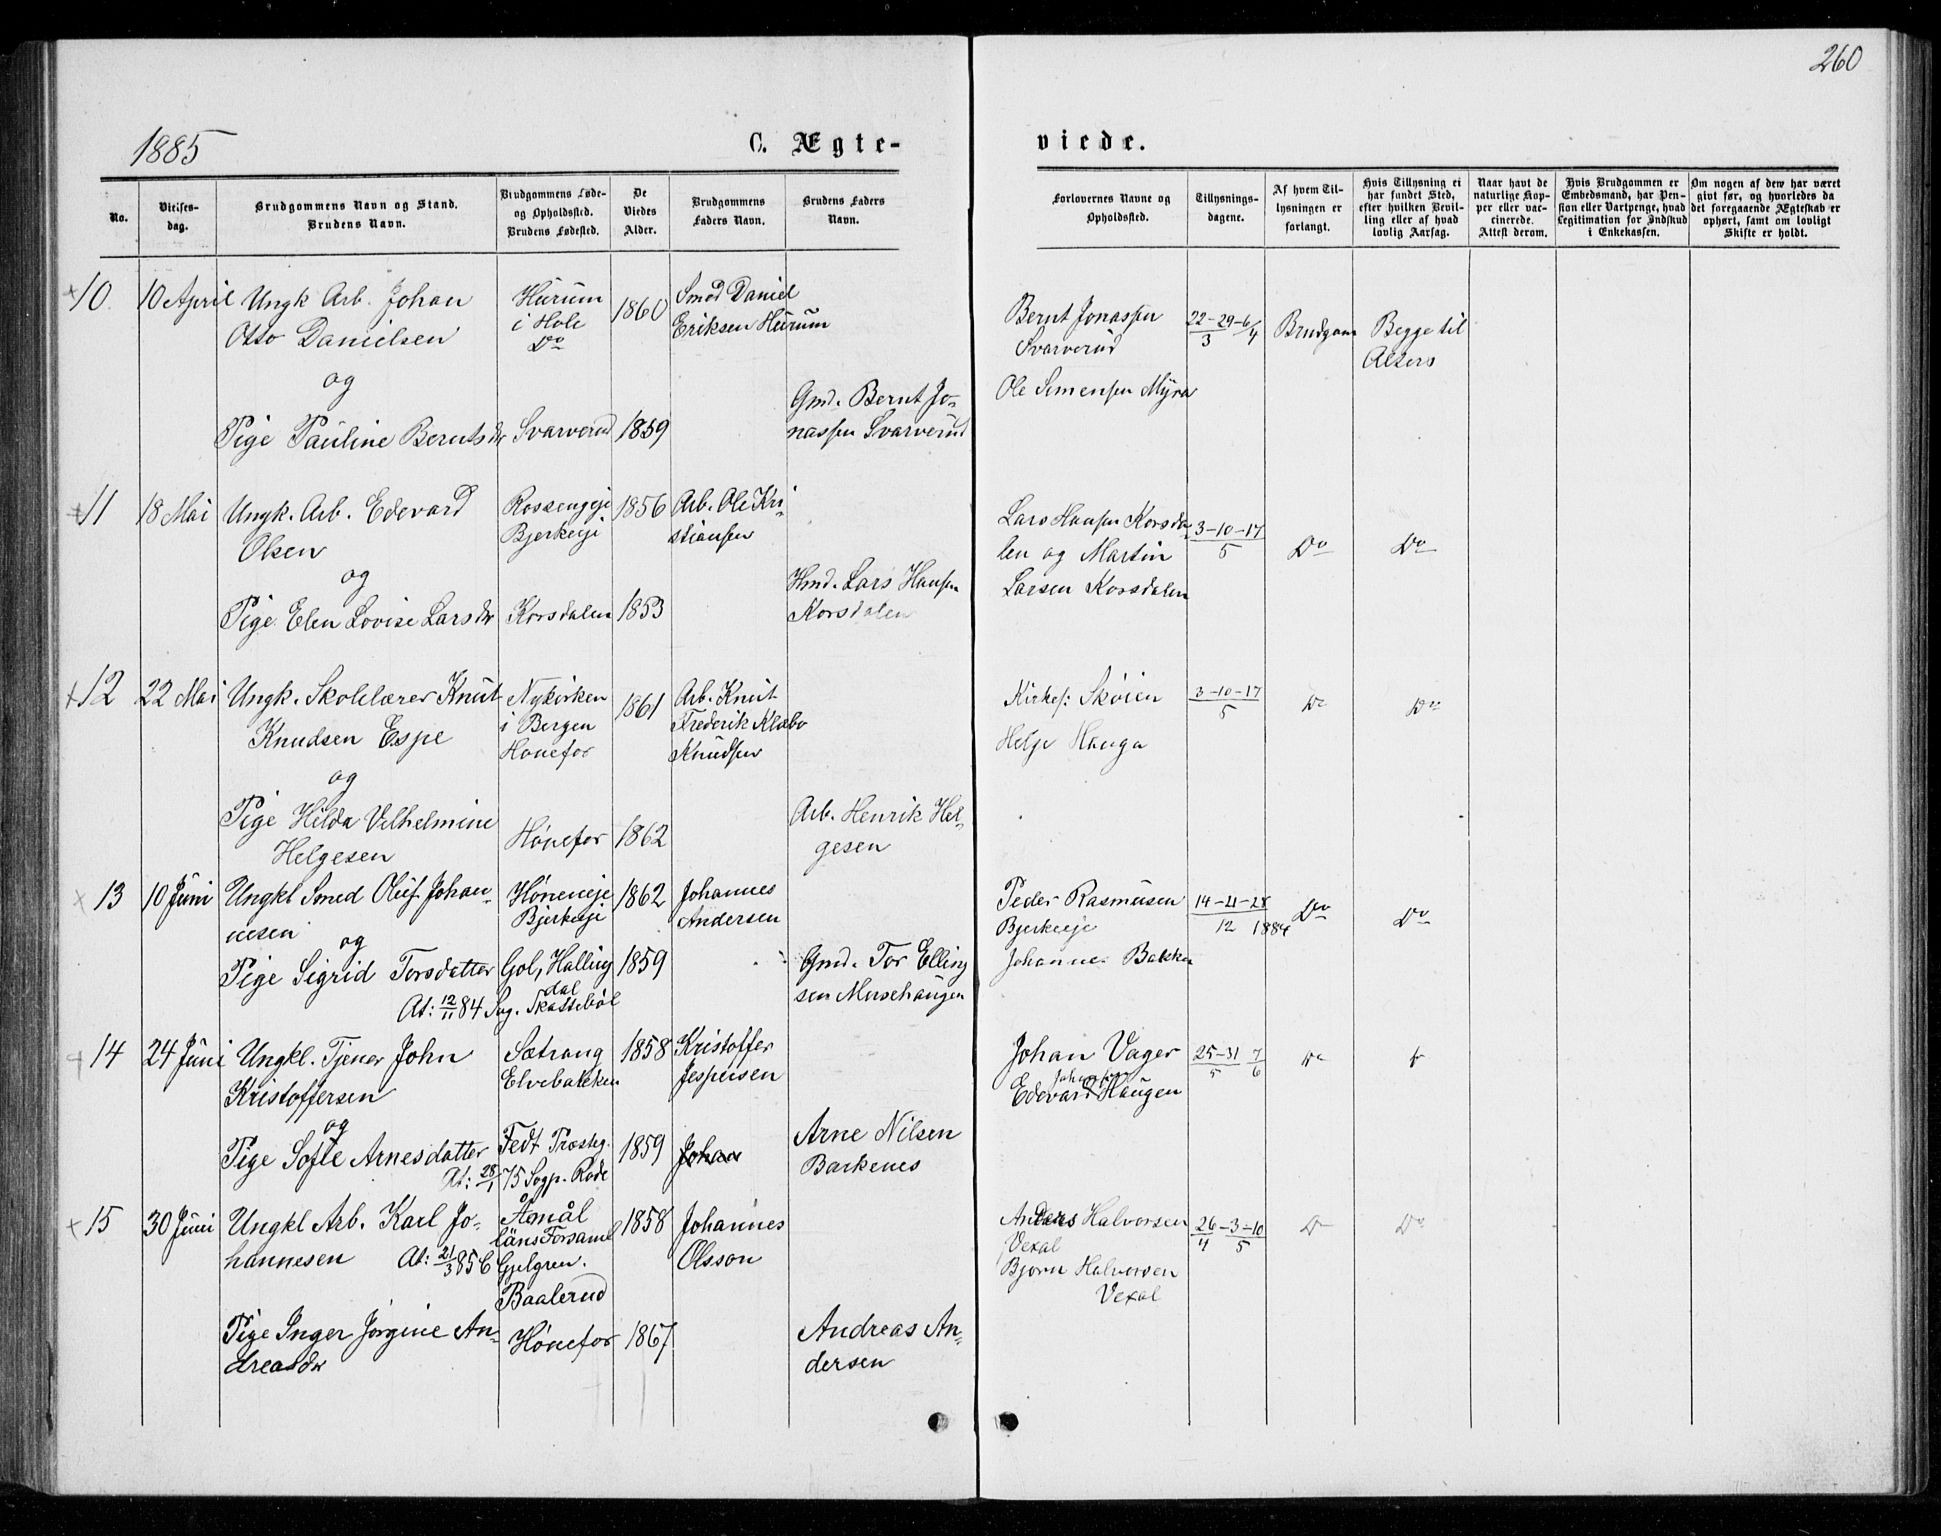 260
1885
C. Ægte-
viede.
No.
Vielses-
dag.
Brudgommens Navn og Stand.
Brudens Navn.
Brudgommens Føde-
og Opholdssted.
Brudens Fødested.
De
Viedes
Alder.
Brudgommens
Faders Navn.
Brudens Faders
Navn.
Forlovernes Navne og
Opholdssted.
Tillysnings-
dagene.
Af hvem Til-
lysningen er
forlangt.
Hvis Tillysning ei
har fundet Sted,
efter hvilken Bevil-
ling eller af hvad
lovlig Aarsag.
Naar havt de
naturlige Kop-
per eller vac-
cinerede.
Attest derom.
Hvis Brudgommen er
Embedsmand, har Pen-
sion eller Vartpenge, hvad
Legitimation for Indskud
i Enkekassen.
Om nogen af dem har været
gift før, og hvorledes da
det foregaaende Ægteskab er
ophørt, samt om lovligt
Skifte er holdt.
10 10 April Ungk Arb. Johan Hurum 1860 Smed Daniel
Otto Danielsen i Hole Eriksen Hurum
Do
og
Pige Pauline Berntsdr Svarverud 1859 Gmd. Bernt Jo-
nassen Svarverud
Bernt Jonassen 22-29-6/4 Brudgom Begge til
Svarverud 3 Alters
Ole Simensen Myra
11 18 Mai Ungk. Arb. Edevard Rossengeje 1856 Arb. Ole Kri-
Olsen Bjerkeje stiansen
og
Pige Elen Lovise Larsdr Korsdalen 1853 Hmd. Lars Hansen
Korsdalen
Lars Hansen Korsda- 3-10-17
len og Martin 5 Do Do
Larsen Korsdalen
12 22 Mai Ungk. Skolelærer Knut Nykirken 1861 Arb. Knut
Knudsen Espe i Bergen Frederik Klæbo
Honefos Knudsen
og
Pige Hilda Vilhelmine Hønefos 1862 Arb. Henrik Hel-
Helgesen gesen
Kirkes: Skøien 3-10-17 Do Do
Helge Hauga 5
13 10 Juni Ungkl Smed Oluf Johan- Høneneje 1862 Johannes
nesen Bjerkeeje Andersen
og
Pige Sigrid Torsdatter Gol, Halling- 1859 Gmd. Tor Elling-
dal sen Mosehaugen
At: 12/11 84 Sog. Skattebøl
Peder Rasmusen 14-21-28 Do Do
Bjerkeeje 12 1884
Johannes Bakken
14 24 Juni Ungkl. Tjener John Sætrang 1858 Kristoffer
Kristoffersen Elvebakken Jespersen
og
Pige Sofie Arnesdatter Fedt Præsteg. 1859 Johan Arne Nilsen
At: 28/1 75 Sogp. Rode Barkenes
Johan Vager 25-31 7 Do
Johansen 5 6
Edevard Haugen
15 30 Juni Ungkl Arb. Karl Jo- Åmål 1858 Johannes
hannesen At: 21/3 856 läns Forsaml Olsson
Gjelgren.
Baalerud
Pige Inger Jørgine An- Hønefos 1867 Andreas An-
dreasdr dersen
Anders Halvorsen 26-3-10 Do Do
Vexal 4 5
Bjørn Halvorsen
Vexal